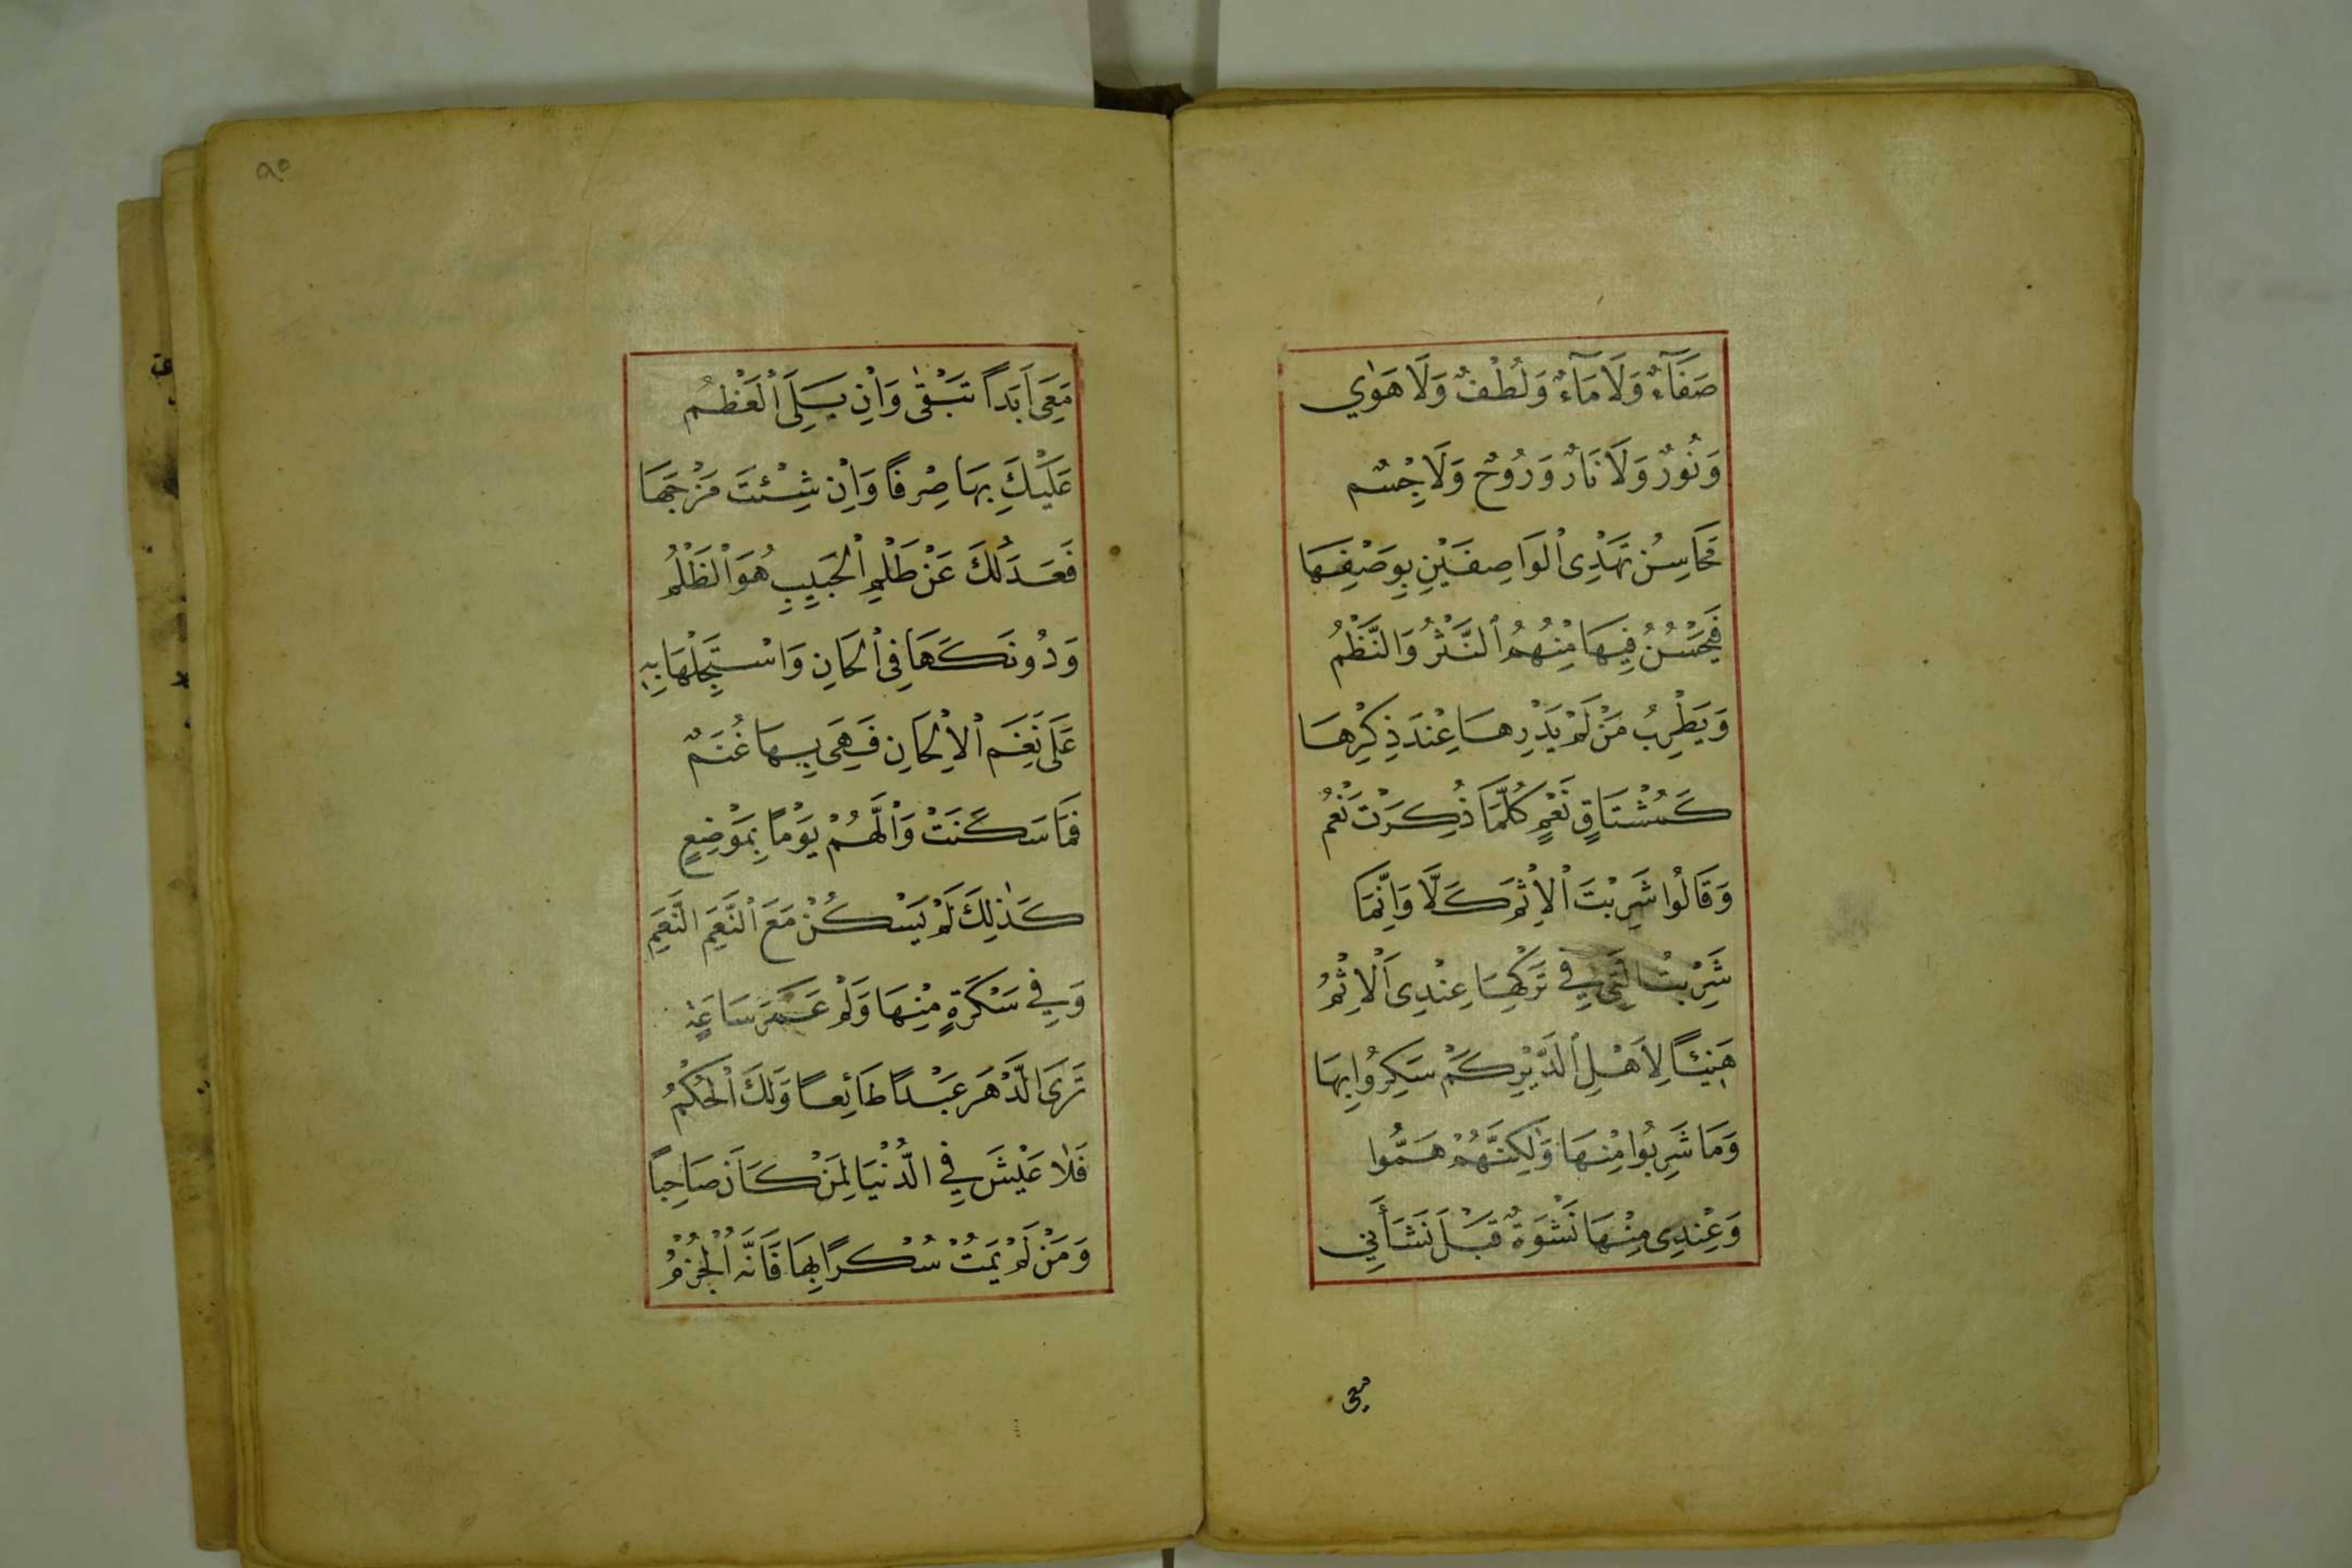 صَفَآءٌ وَلَا مَآءٌ وَلُطْفٌ وَلَا هَوٰي
وَنُورٌ وَلَا نَارٌ وَرُوحٌ وَلَا جِسْمٌ
مَحَاسِنُ تَهْدِى الْوَاصِفَيْنِ بِوَصْفِهَا
فَيَحْسُنُ فِيهَا مِنْهُمُ النَّثْرُ وَالنَّظْمُ
وَيَطْرِبُ مَنْ لَمْ يَدْرِهَا عِنْدَ ذِكْرِهَا
كَمُشْتَاقٍ نَعْمٍ كُلَّمَا ذُكِرَتْ نَعْمُ
وَقَالُوا شَرِبْتَ الْاِثْمَ كَلَّا وَاِنَّمَا
شَرِبْتُ الَّتِي فِي تَرْكِهَا عِنْدِى الْاِثْمُ
هَنِيئًا لِاَهْلِ الدَّيْرِ كَمْ سَكِرُوا بِهَا
وَمَا شَرِبُوا مِنْهَا وَلٰكِنَّهُمْ هَمُّوا
وَعِنْدِى مِنْهَا نَشْوَةٌ قَبْلَ نَشَأَتِي
معى
٩٥
مَعِى اَبَدًا تَبْقٰى وَاِنْ يَبْلَى الْعَظْمُ
عَلَيْكَ بِهَا صِرْفًا وَاِنْ شِئْتَ مَزْجَهَا
فَعَدْلُكَ عَنْ ظَلْمِ الْحَبِيبِ هُوَ الْظُلْمُ
وَدُونَكَهَا فِى الْحَانِ وَاسْتَجْلِهَا بِهِ
عَلَى نَغَمِ الْاِلْحَانِ فَهِىَ بِهَا غُنْمٌ
فَمَا سَكَنَتْ وَالْهَمُّ يَوْمًا بِمَوْضِعٍ
كَذٰلِكَ لَمْ يَسْكُنْ مَعَ النَّغَمِ الْغَمِّ
وَفِي سَكْرَةٍ مِنْهَا وَلَوْ عُمْرَ سَاعَةٍ
تَرَى الدَّهْرَ عَبْدًا طَائِعًا وَلَكَ الْحُكْمُ
فَلَا عَيْشَ فِي الدُّنْيَا لِمَنْ كَانَ صَاحِبًا
وَمَنْ لَمْ يَمُتْ سُكْرًا بِهَا فَاتَهُ الْحَزْمُ